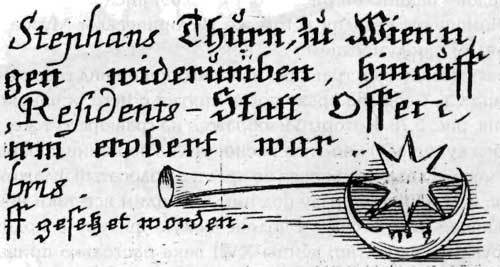 Stephans Thurn, zu Wienn,
gen widerumben, hinauff
Residents-Statt Offeri
urm erobert war
bris
ff gesetzet worden.